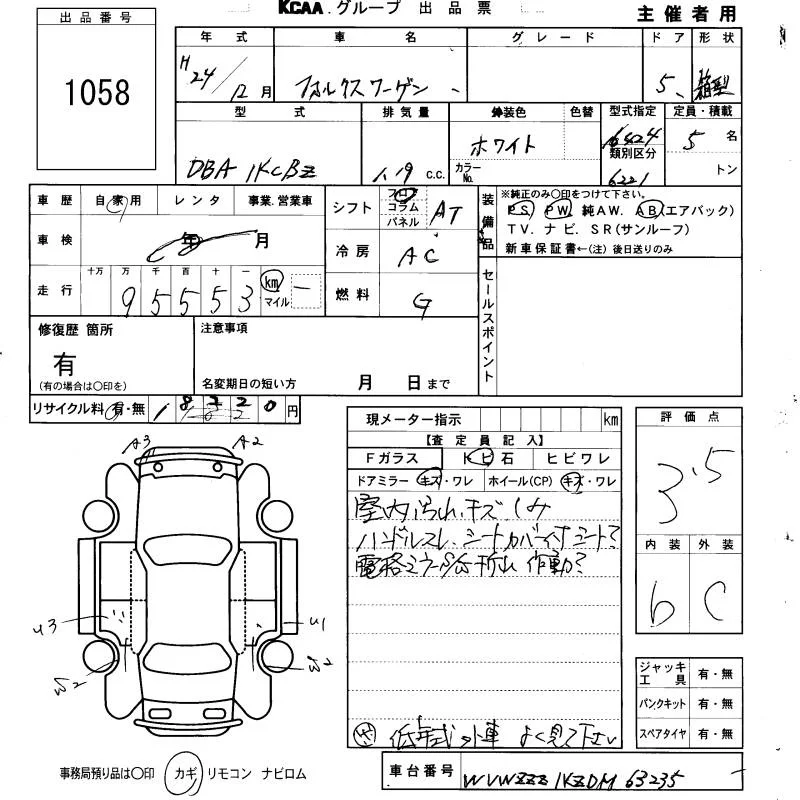 出品番号
1058
KCAA.グループ 出品票
主催者用
年式 車名 グレード ドア 形状
H24/12月 フォルクスワーゲン 5 箱型
型式 排気量 外装色 色替 型式指定 定員・積載
DBA 1KCBZ 1.19 c.c. ホワイト カラーNo. 16424 5名
類別区分
6221 トン
車歴 自家用 レンタ 事業.営業車
シフト フロア コラム パネル AT
装備品
※純正のみ○印をつけて下さい。
PS PW 純AW. AB(エアバック)
TV. ナビ. SR(サンルーフ)
新車保証書←(注) 後日送りのみ
車検 年 月
冷房 AC
走行 十万 万 千 百 十 一
95553 km マイル
燃料 G
セールスポイント
修復歴 箇所
有
(有の場合は○印を)
注意事項
名変期日の短い方 月 日まで
リサイクル料 有・無 円
現メーター指示 km
【査定員記入】
Fガラス トビ石 ヒビワレ
ドアミラー キズ・ワレ ホイール(CP) キズ・ワレ
室内汚れ.キズ.シミ
ハンドルスレ.シートカバー付シート?
電格ミラー 折れ 作動?
低年式外車 よく見て下さい
評価点
3.5
内装 外装
b C
A3 A2
U3 U1
W2 W2
ジャッキ工具 有・無
パンクキット 有・無
スペアタイヤ 有・無
事務局預り品は○印 カギ リモコン ナビロム
車台番号 WVWZZZ1KZDM63235